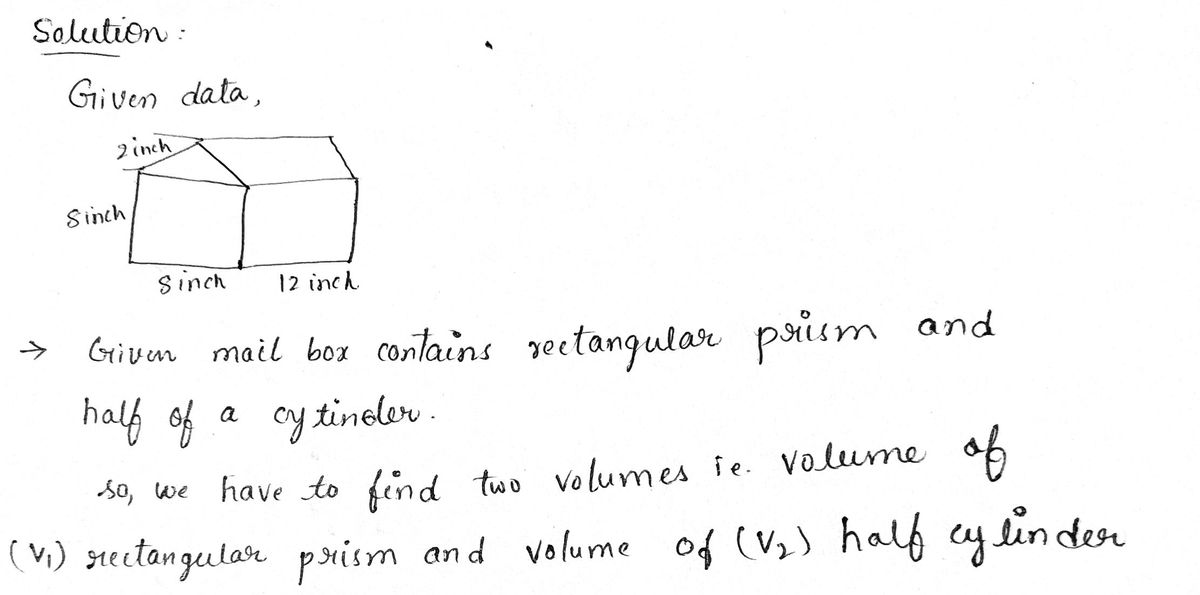 Solution :
Given data,
2 inch
8 inch
8 inch 12 inch
→ Given mail box contains rectangular prism and
half of a cytinder.
so, we have to find two volumes ie. volume of
(V₁) rectangular prism and volume of (V₂) half cylinder